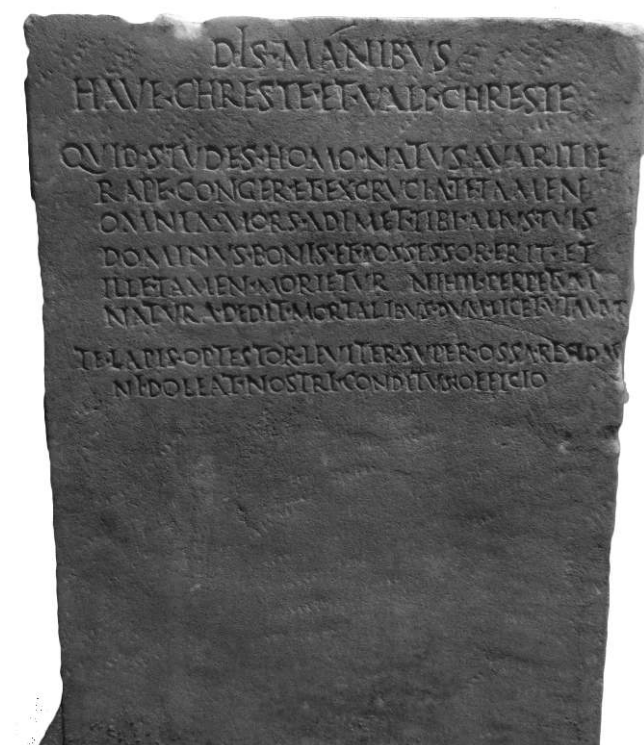 DIS·MANIBVS
HAVE·CHRESTE·ET·VALE·CHRESTE
QVID·STVDES·HOMO·NATVS·AVARITIE
RAPE·CONGER·ET·EXCRVCIA·TE·TAMEN
OMNIA·MORS·ADIMET·TIBI·ALIVS·TVIS
DOMINVS·BONIS·ET·POSSESSOR·ERIT·ET
ILLE·TAMEN·MORIETVR NIHIL·PERPETVM
NATVRA·DEDIT·MORTALIBVS·DVM·LICET
TE·LAPIS·OPTESTOR·LEVITER·SVPER·OSSA
NI·DOLEAT·NOSTRI·CONDITVS·OFFICIO